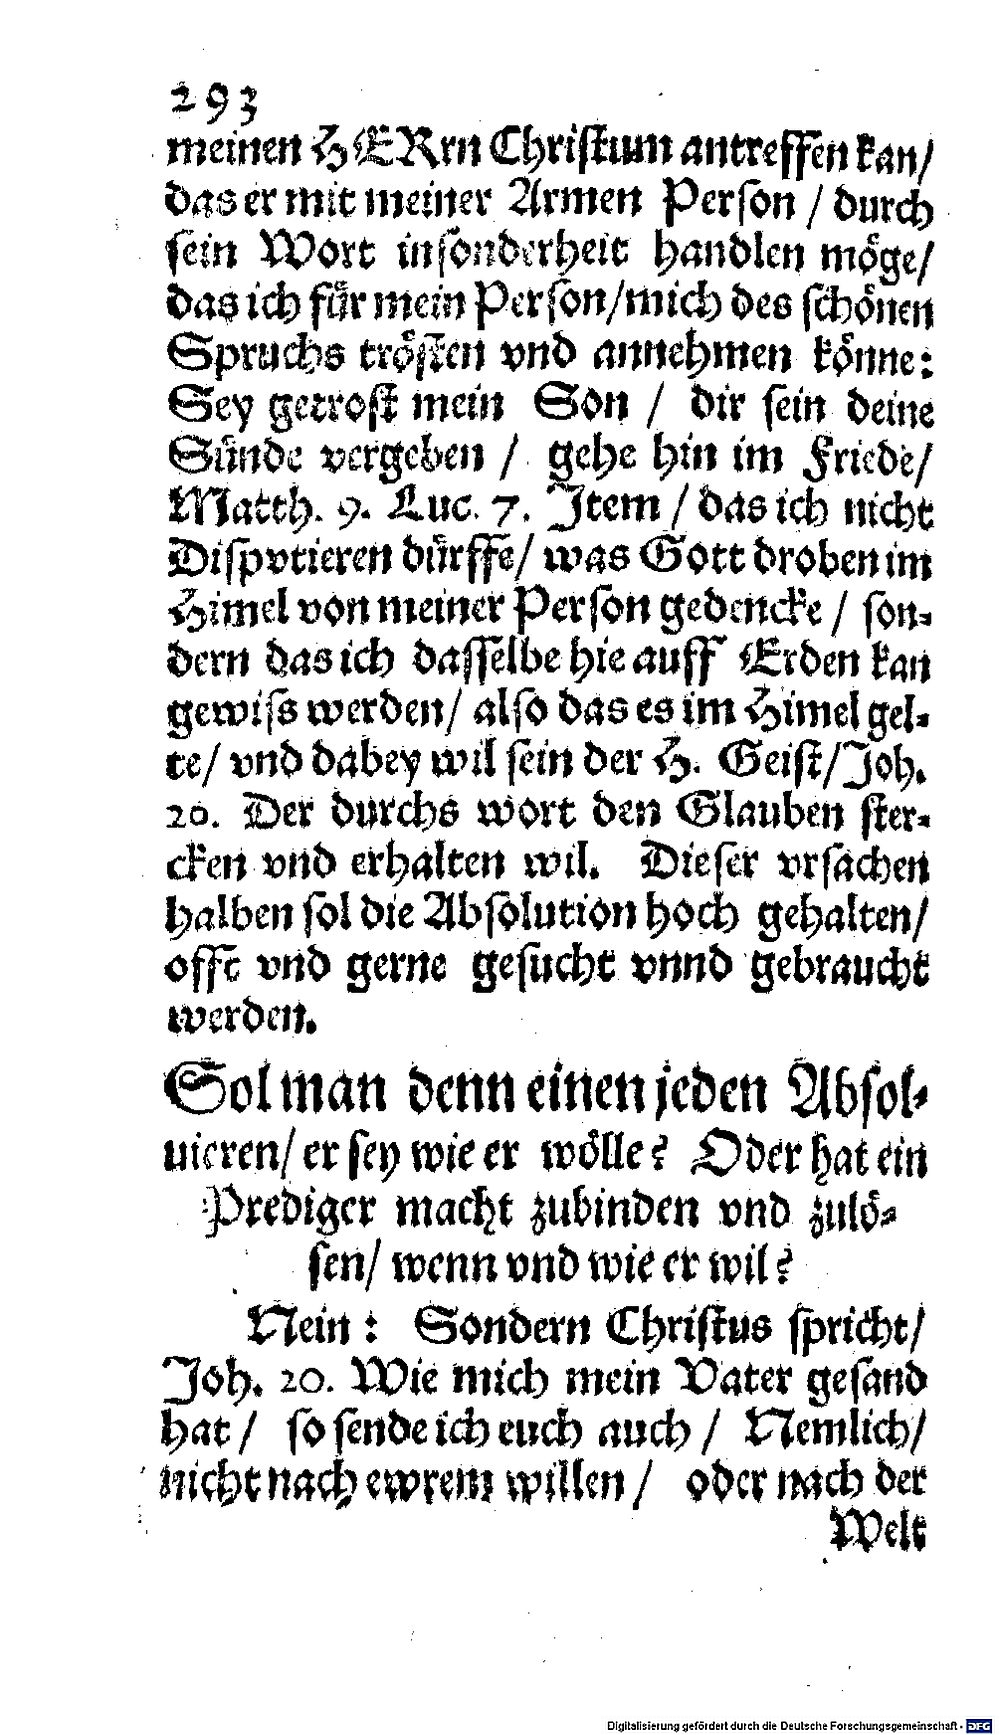 293
meinen HERrn Chriſtum antreffen kan/
das er mit meiner Armen Perſon / durch
ſein Wort inſonderheit handlen möge/
das ich für mein Perſon/mich des ſchönen
Spruchs tröſten vnd annehmen könne:
Sey getroſt mein Son / dir ſein deine
Sünde vergeben / gehe hin im Friede/
Matth. 9. Luc. 7. Item / das ich nicht
Diſpvtieren dürffe/ was Gott droben im
Himel von meiner Perſon gedencke / ſon-
dern das ich daſſelbe hie auff Erden kan
gewiſs werden/ alſo das es im Himel gel-
te/ vnd dabey wil ſein der H. Geiſt/Joh.
20. Der durchs wort den Glauben ſter-
cken vnd erhalten wil. Dieſer vrſachen
halben ſol die Abſolution hoch gehalten/
offt vnd gerne geſucht vnnd gebraucht
werden.
Sol man denn einen jeden Abſol-
uieren/ er ſey wie er wölle? Oder hat ein
Prediger macht zubinden vnd zulö-
ſen/ wenn vnd wie er wil?
Nein: Sondern Chriſtus ſpricht/
Joh. 20. Wie mich mein Vater geſand
hat / ſo ſende ich euch auch / Nemlich/
nicht nach ewrem willen / oder nach der
Welt
Digitalisierung gefördert durch die Deutsche Forschungsgemeinschaft - DFG